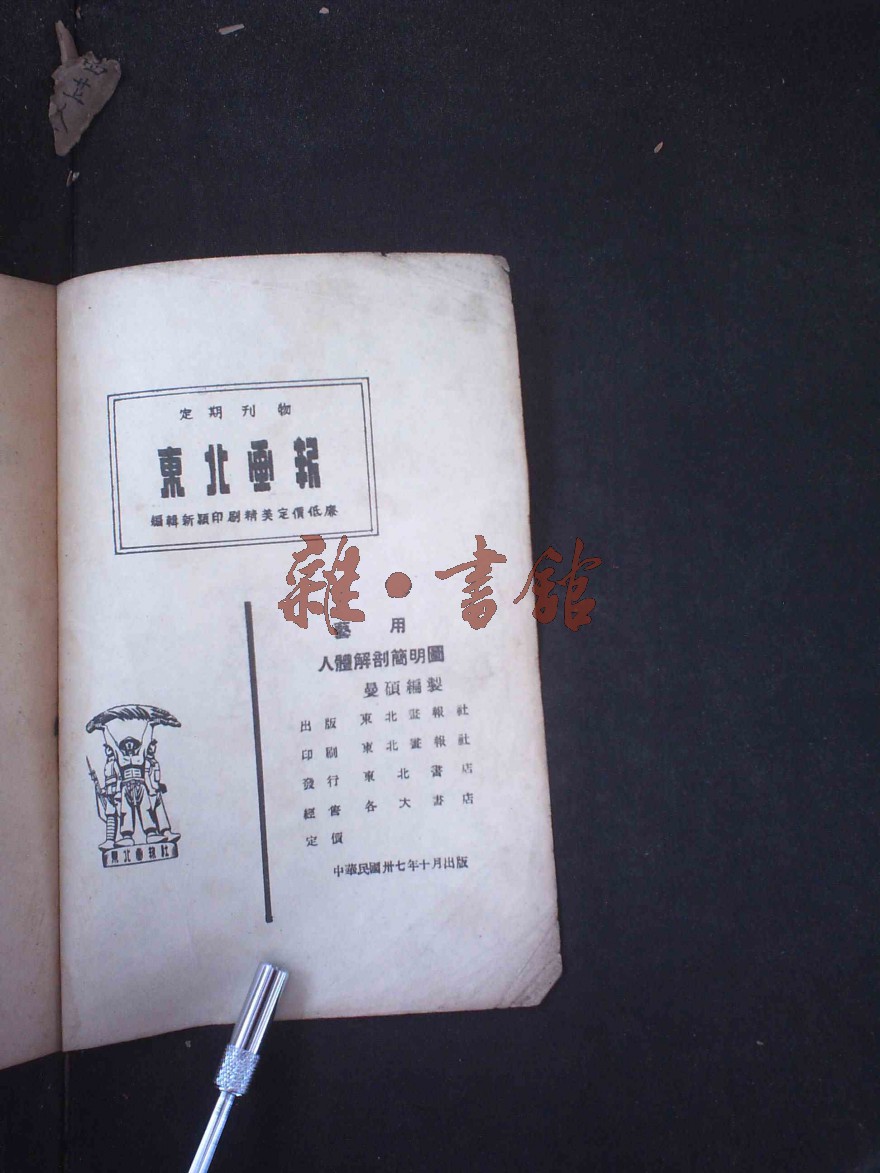 定期刊物
東北画報
編輯新穎印刷精美定價低廉
雜·書館
藝用
人體解剖簡明圖
曼碩編製
出版 東北畫報社
印刷 東北畫報社
發行 東北書店
經售 各大書店
定價
中華民國卅七年十月出版
東北画報社